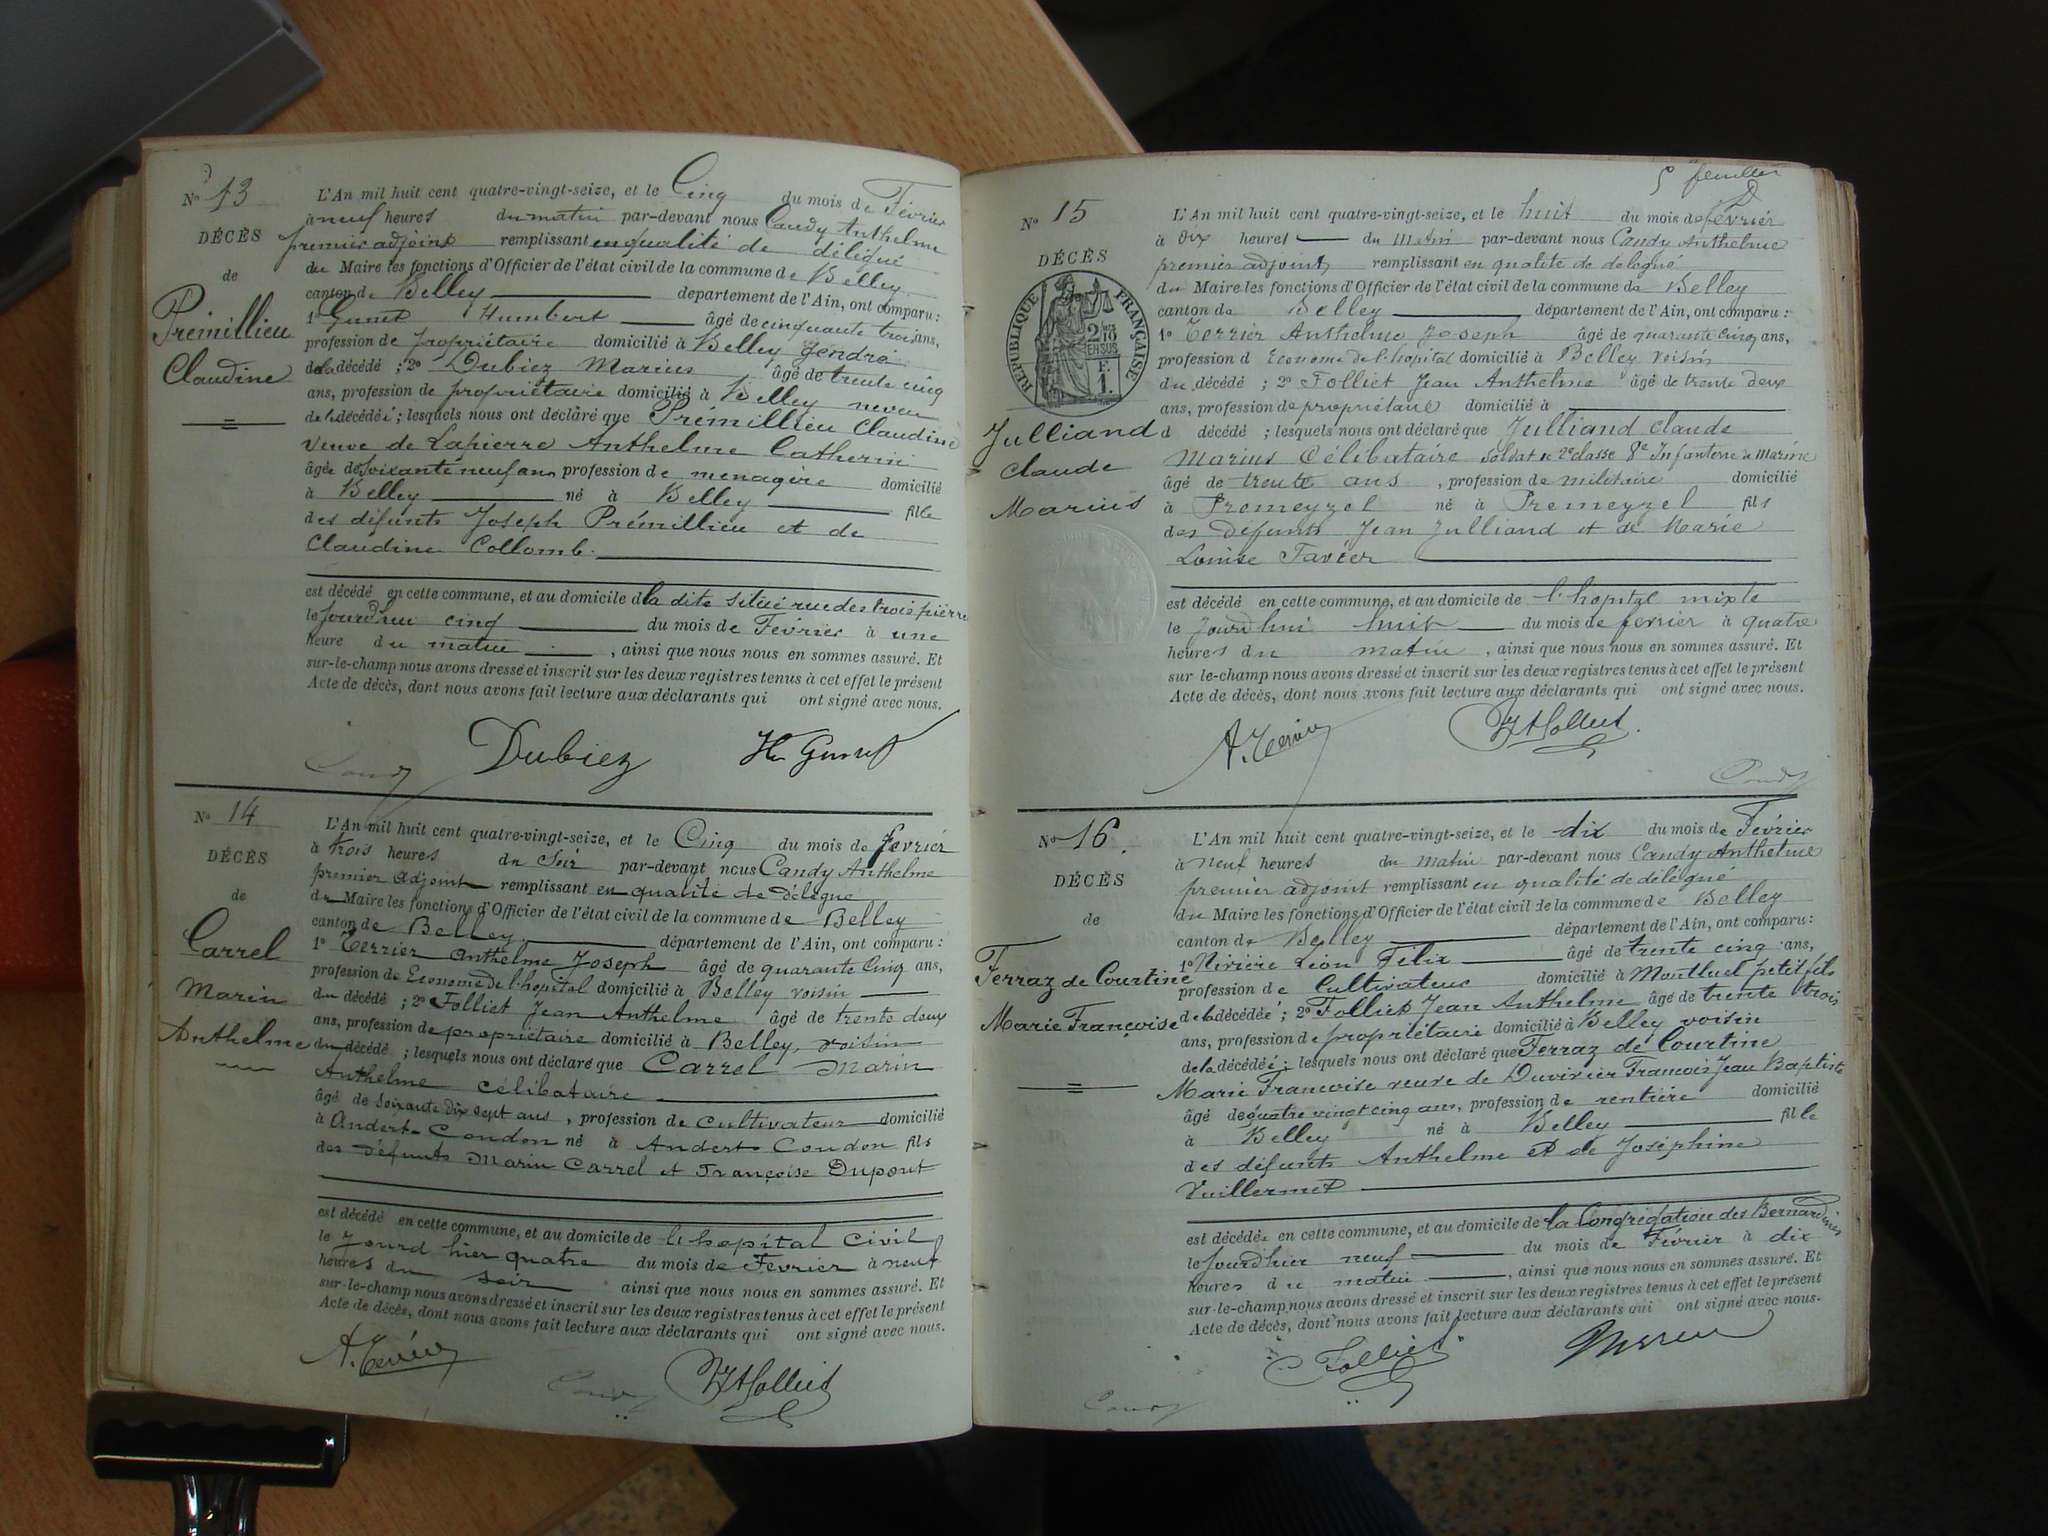 No 13
DÉCÈS
de
Prémillieu
Claudine
L'An mil huit cent quatre-vingt-seize, et le Cinq du mois de Février
à neuf heures du matin par-devant nous Candy Anthelme
premier adjoint remplissant en qualité de délégué
du Maire les fonctions d'Officier de l'état civil de la commune de Belley
canton de Belley département de l'Ain, ont comparu :
1° Humbert âgé de cinquante trois ans,
profession de propriétaire domicilié à Belley gendre
de la décédé ; 2° Dubiez Marius âgé de trente cinq
ans, profession de propriétaire domicilié à Belley neveu
de la décédée ; lesquels nous ont déclaré que Prémillieu Claudine
veuve de Lapierre Anthelme Catherin
âgée de soixante neuf ans profession de menagère domicilié
à Belley né à Belley fille
des défunts Joseph Prémillieu et de
Claudine Collomb.
est décédé en cette commune, et au domicile de la dite situé rue des trois pierres
le jourdhui cinq du mois de Février à une
heure du matin , ainsi que nous nous en sommes assuré. Et
sur-le-champ nous avons dressé et inscrit sur les deux registres tenus à cet effet le présent
Acte de décès, dont nous avons fait lecture aux déclarants qui ont signé avec nous.
Candy Dubiez
No 14
DÉCÈS
de
Carrel
Marin
Anthelme
L'An mil huit cent quatre-vingt-seize, et le Cinq du mois de février
à trois heures du Soir par-devant nous Candy Anthelme
premier adjoint remplissant en qualité de Délégué
du Maire les fonctions d'Officier de l'état civil de la commune de Belley
canton de Belley département de l'Ain, ont comparu :
1° Terrier Anthelme Joseph âgé de quarante cinq ans,
profession de Econome de l'hopital domicilié à Belley voisin
du décédé ; 2° Folliet Jean Anthelme âgé de trente deux
ans, profession de propriétaire domicilié à Belley, voisin
du décédé ; lesquels nous ont déclaré que Carrel Marin
Anthelme célibataire
âgé de soixante dix sept ans , profession de cultivateur domicilié
à Andert-Condon né à Andert Condon fils
des défunts Marin Carrel et Françoise Dupont
est décédé en cette commune, et au domicile de l'hopital Civil
le jourd hier quatre du mois de Fevrier à neuf
heures du soir ainsi que nous nous en sommes assuré. Et
sur-le-champ nous avons dressé et inscrit sur les deux registres tenus à cet effet le présent
Acte de décès, dont nous avons fait lecture aux déclarants qui ont signé avec nous.
A. Terrier Candy Folliet
5 feuillet
No 15
DÉCÈS
RÉPUBLIQUE FRANÇAISE
F. 1.
Julliand
Claude
Marius
L'An mil huit cent quatre-vingt-seize, et le huit du mois de février
à dix heures du matin par-devant nous Candy Anthelme
premier adjoint remplissant en qualité de délégué
du Maire les fonctions d'Officier de l'état civil de la commune de Belley
canton de Belley département de l'Ain, ont comparu :
1° Terrier Anthelme Joseph âgé de quarante cinq ans,
profession d Econome de l'hopital domicilié à Belley voisin
du décédé ; 2° Folliet Jean Anthelme âgé de trente deux
ans, profession de propriétaire domicilié à
d décédé ; lesquels nous ont déclaré que Julliand Claude
Marius Célibataire soldat de 2e classe 8e Infanterie de Marine
âgé de trente ans , profession de militaire domicilié
à Premeyzel né à Premeyzel fils
des défunts Jean Julliand et de Marie
Louise Tavier
est décédé en cette commune, et au domicile de l'hopital mixte
le jourdhui huit du mois de fevrier à quatre
heures du matin , ainsi que nous nous en sommes assuré. Et
sur-le-champ nous avons dressé et inscrit sur les deux registres tenus à cet effet le présent
Acte de décès, dont nous avons fait lecture aux déclarants qui ont signé avec nous.
A. Terrier Folliet
Candy
No 16.
DÉCÈS
de
Ferraz de Courtine
Marie Françoise
L'An mil huit cent quatre-vingt-seize, et le dix du mois de Février
à neuf heures du matin par-devant nous Candy Anthelme
premier adjoint remplissant en qualité de délégué
du Maire les fonctions d'Officier de l'état civil de la commune de Belley
canton de Belley département de l'Ain, ont comparu :
1° Rivière Léon Félix âgé de trente cinq ans,
profession de Cultivateur domicilié à Montluel petit fils
de la décédée ; 2° Folliet Jean Anthelme âgé de trente trois
ans, profession de propriétaire domicilié à Belley voisin
de la décédée ; lesquels nous ont déclaré que Ferraz de Courtine
Marie Francoise veuve de Duvivier François Jean Baptiste
âgé de quatre vingt cinq ans, profession de rentière domicilié
à Belley né à Belley fille
des défunts Anthelme et de Joséphine
Vuillermet
est décédée en cette commune, et au domicile de la Congrégation des Bernardines
le jourdhier neuf du mois de Février à dix
heures du matin , ainsi que nous nous en sommes assuré. Et
sur-le-champ nous avons dressé et inscrit sur les deux registres tenus à cet effet le présent
Acte de décès, dont nous avons fait lecture aux déclarants qui ont signé avec nous.
Folliet
Candy